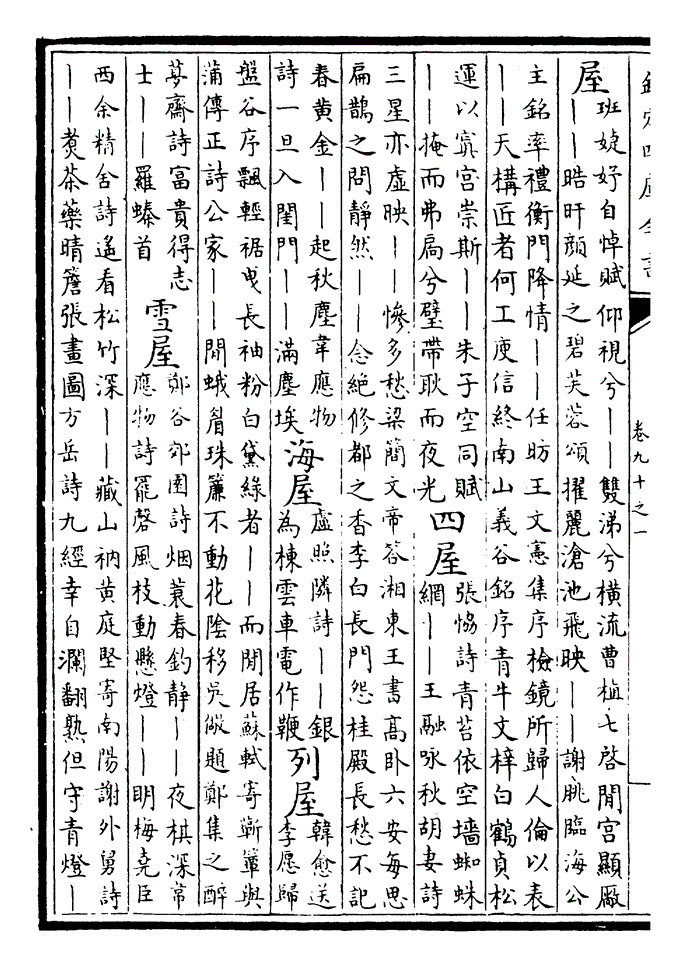 欽定四庫全書
卷九十之一
屋
班婕妤自悼賦仰視兮——雙涕兮橫流曹植七啓閒宮顯厰
——皓旰顔延之碧芙蓉頌擢麗滄池飛映——謝朓臨海公
主銘率禮衡門降情——任昉王文憲集序檢鏡所歸人倫以表
——天構匠者何工庾信終南山義谷銘序青牛文梓白鶴貞松
運以寘宮崇斯——朱子空同賦
——掩而弗扃兮壁帶耿而夜光
四屋
張協詩青苔依空墻蜘蛛
網——王融咏秋胡妻詩
三星亦虛映——慘多愁梁簡文帝答湘東王書髙卧六安每思
扁鵲之問靜然——念絶修都之香李白長門怨桂殿長愁不記
春黄金——起秋塵韋應物
詩一旦入閨門——滿塵埃
海屋
盧照隣詩——銀
為棟雲車電作鞭
列屋
韓愈送
李愿歸
盤谷序飄輕裾曳長袖粉白黛緑者——而閒居蘇軾寄蘄簟與
蒲傳正詩公家——閒蛾眉珠簾不動花陰移吳儆題鄭集之醉
夢齋詩富貴得志
士——羅螓首
雪屋
鄭谷郊園詩烟蓑春釣靜——夜棋深常
應物詩罷磬風枝動懸燈——明梅堯臣
西余精舍詩遙看松竹深——藏山衲黄庭堅寄南陽謝外舅詩
——煑茶藥晴簷張畫圖方岳詩九經幸自瀾翻熟但守青燈—